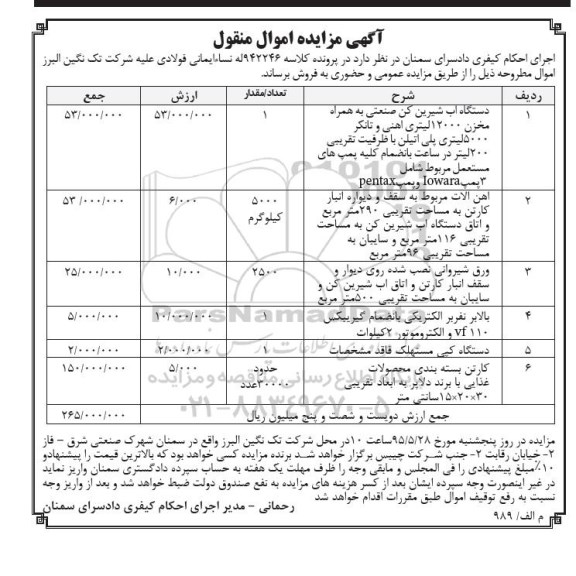 آگهی مزایده اموال منقول
اجرای احکام کیفری دادسرای سمنان در نظر دارد در پرونده کلاسه ۹۴۲۲۴۶له نساءایمانی فولادی علیه شرکت تک نگین البرز
اموال مطروحه ذیل را از طریق مزایده عمومی و حضوری به فروش برساند.
ردیف شرح تعداد/مقدار ارزش جمع
۱ دستگاه اب شیرین کن صنعتی به همراه ۱ ۵۳/۰۰۰/۰۰۰ ۵۳/۰۰۰/۰۰۰
مخزن ۱۲۰۰۰لیتری اهنی و تانکر
۵۰۰۰لیتری پلی اتیلن با ظرفیت تقریبی
۲۰۰لیتر در ساعت بانضمام کلیه پمپ های
مستعمل مربوط شامل
۳پمپlowara وپمپpentax
۲ اهن الات مربوط به سقف و دیواره انبار ۵۰۰۰ ۶/۰۰۰ ۵۳ /۰۰۰/۰۰۰
کارتن به مساحت تقریبی ۲۹۰متر مربع کیلوگرم
و اتاق دستگاه اب شیرین کن به مساحت
تقریبی ۱۱۶متر مربع و سایبان به
مساحت تقریبی ۹۶متر مربع
۳ ورق شیروانی نصب شده روی دیوار و ۲۵۰۰ ۱۰/۰۰۰ ۲۵/۰۰۰/۰۰۰
سقف انبار کارتن و اتاق اب شیرین کن و
سایبان به مساحت تقریبی ۵۰۰متر مربع
۴ بالابر نفربر الکتریکی بانضمام گیربکس ۱ ۱۰/۰۰۰/۰۰۰ ۵/۰۰۰/۰۰۰
vf ۱۱۰ و الکتروموتور ۲کیلوات
۵ دستگاه کپی مستهلک فاقد مشخصات ۱ ۲/۰۰۰/۰۰۰ ۲/۰۰۰/۰۰۰
۶ کارتن بسته بندی محصولات حدود ۵/۰۰۰ ۱۵۰/۰۰۰/۰۰۰
غذایی با برند دلاپر به ابعاد تقریبی ۳۰۰۰۰عدد
۳۰×۲۰×۱۵سانتی متر
جمع ارزش دویست و شصت و پنج میلیون ریال ۲۶۵/۰۰۰/۰۰۰
مزایده در روز پنجشنبه مورخ ۹۵/۵/۲۸ساعت ۱۰در محل شرکت تک نگین البرز واقع در سمنان شهرک صنعتی شرق – فاز
۲- خیابان رقابت ۲- جنب شرکت چیبس برگزار خواهد شد برنده مزایده کسی خواهد بود که بالاترین قیمت را پیشنهادو
۱۰٪مبلغ پیشنهادی را فی المجلس و مابقی وجه را ظرف مهلت یک هفته به حساب سپرده دادگستری سمنان واریز نماید
در غیر اینصورت وجه سپرده ایشان بعد از کسر هزینه های مزایده به نفع صندوق دولت ضبط خواهد شد و بعد از واریز وجه
نسبت به رفع توقیف اموال طبق مقررات اقدام خواهد شد
رحمانی – مدیر اجرای احکام کیفری دادسرای سمنان
م الف/ ۹۸۹
ParsNamadData
۰۲۱-۸۸۳۴۹۶۷۰-۵